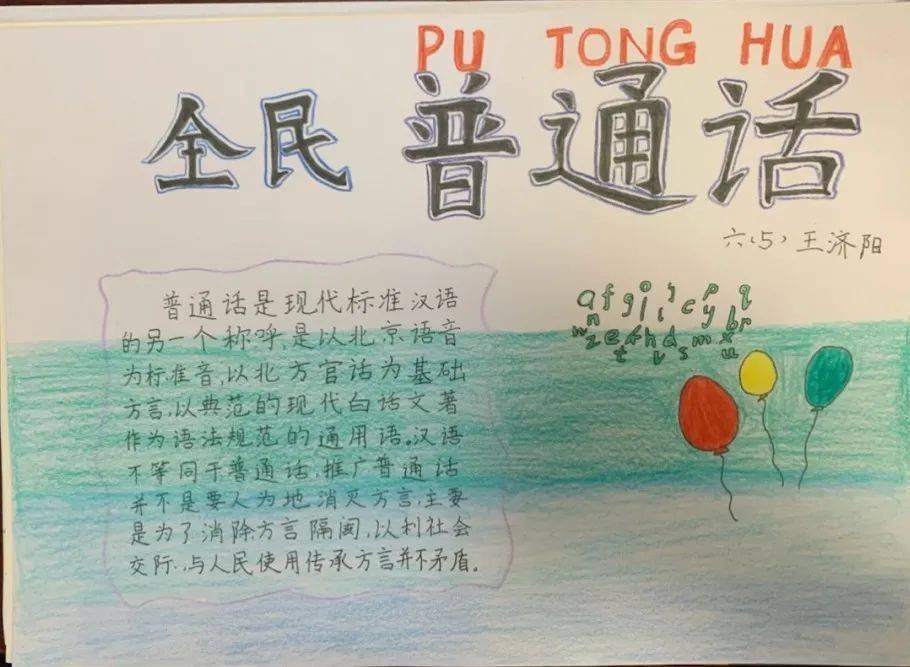 PU TONG HUA
全民 普通话
六(5) 王济阳
普通话是现代标准汉语
的另一个称呼,是以北京语音
为标准音,以北方官话为基础
方言,以典范的现代白话文著
作为语法规范的通用语。汉语
不等同于普通话,推广普通话
并不是要人为地消灭方言,主要
是为了消除方言隔阂,以利社会
交际,与人民使用传承方言并不矛盾。
a f g o i j c p y q